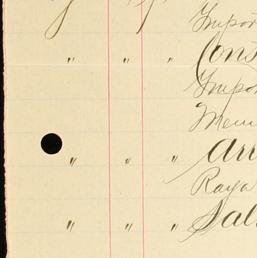 Impor
" " " Cons
Impor
Mem
" " " Arr
Raya
" " " Sal